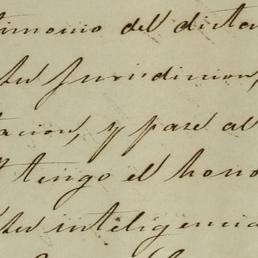 timonio del dicta
su Jurisdicion,
tacion, y pase al
tengo el hono
su inteligencia